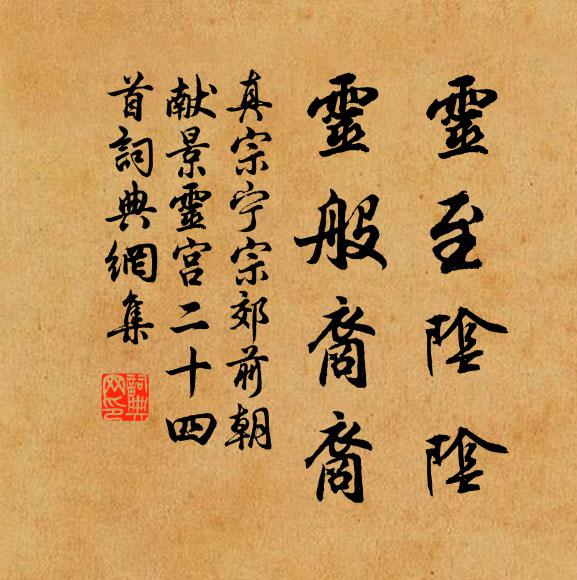 靈至陰陰
靈般裔裔
真宗宁宗郊前朝
献景靈宫二十四
首詞典網集
詞典网印